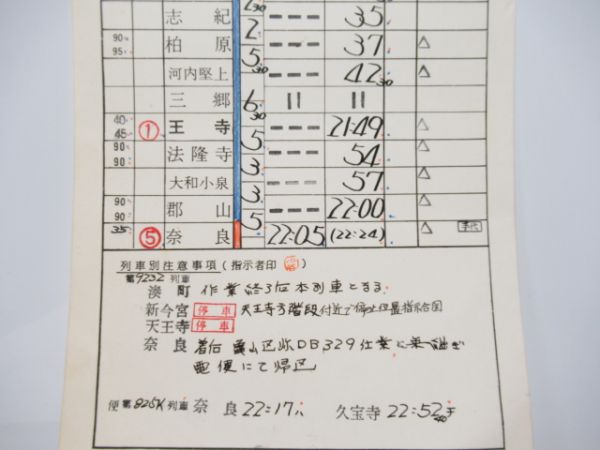 志紀 --- 35
90 95 柏原 5 --- 37 △
河内堅上 --- 42 30 △
三郷 6 30 = =
40 45 ① 王寺 5 --- 21:49 △
90 90 法隆寺 3 --- 54 △
大和小泉 3 --- 57 △
90 90 郡山 5 --- 22:00 △
35 ⑤ 奈良 22:05 (22:24) △
列車別注意事項(指示者印 )
第9232列車
湊町 作業終了后本列車とする
新今宮 停車 天王寺方階段付近で停止位置指示合図
天王寺 停車
奈良 着后 区 DB329仕業に乗継ぎ
電便にて帰区
便第825K列車 奈良 22:17 久宝寺 22:52